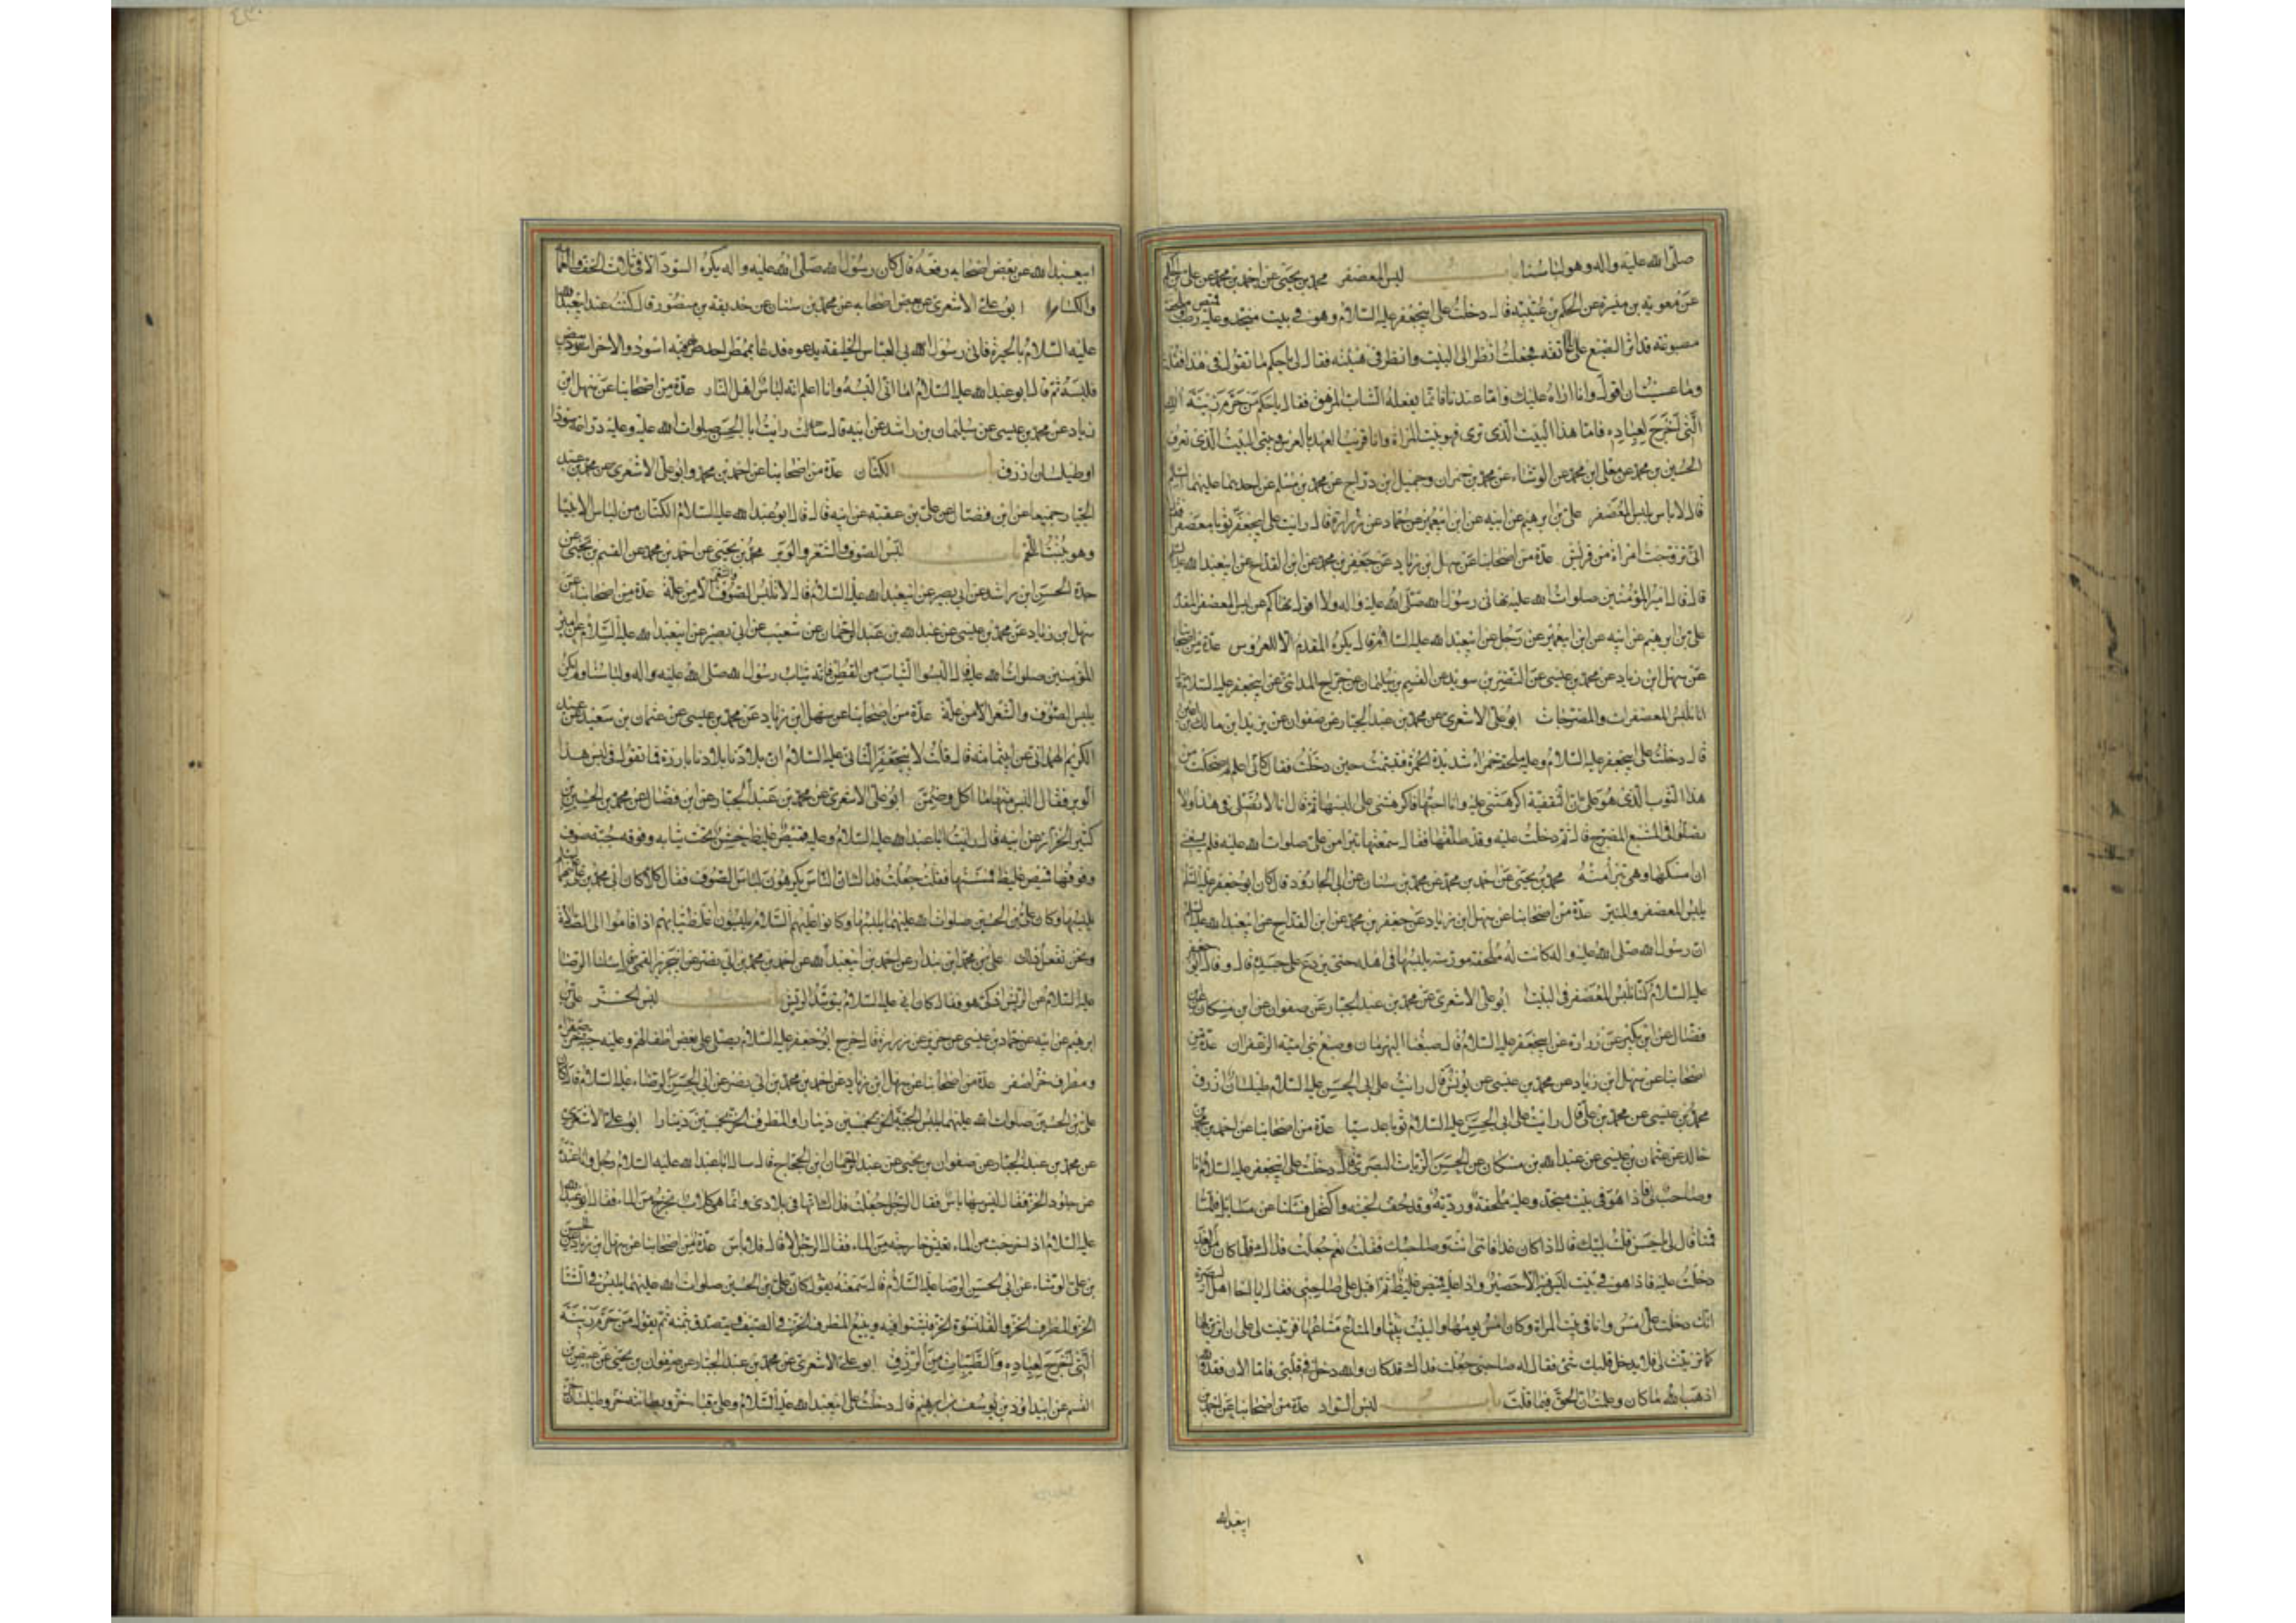 صلّى الله عليه واله وهو لباسنا باب لبس المعصفر محمد بن يحيى عن احمد بن محمد عن على بن الحكم
عن معوية بن ميسرة عن الحكم بن عتيبة قال دخلت على ابيجعفر عليه السلام وهو فى بيت منجد وعليه قميص رطب وملحفة
مصبوغة قد اثر الصبغ على عاتقه فجعلت انظر الى البيت وانظر فى هيئته فقال لى يا حكم ما تقول فى هذا فقلت
وما عسيت ان اقول وانا اراه عليك وامّا عندنا فانّما يفعله الشاب المرهق فقال يا حكم من حرّم زينة الله
الّتى اخرج لعباده فامّا هذا البيت الذى ترى فهو بيت المراة وانا قريب العهد بالعرس وبيتى البيت الذى تعرف
الحسين بن محمد عن معلى ابن محمد عن الوشاء عن محمد بن حمران وجميل ابن درّاج عن محمد بن مسلم عن احدهما عليهما السلم
قال لا باس بلبس المعصفر على بن ابرهيم عن ابيه عن ابن ابيعمير عن حماد عن زرارة قال رايت على ابيجعفر ثوبا معصفرا فقال
انّى تزوجت امراة من قريش عدّة من اصحابنا عن سهل بن زياد عن جعفر بن محمد عن ابن القداح عن ابيعبد الله عليه السلم
قال قال امير المؤمنين صلوات الله عليه نهانى رسول الله صلّى الله عليه واله ولا اقول نهاكم عن لبس المعصفر المفدم
على بن ابرهيم عن ابيه عن ابن ابيعمير عن رجل عن ابيعبد الله عليه السلام قال يكره المفدم الا للعروس عدّة من اصحابنا
عن سهل ابن زياد عن محمد بن عيسى عن النضر بن سويد عن القسم بن سليمان عن جراح المدائنى عن ابيجعفر عليه السلام قال
انا نلبس المعصفرات والمضرجات ابو على الاشعرى عن محمد بن عبد الجبار عن صفوان عن بريد ابن مالك بن اعين
قال دخلت على ابيجعفر عليه السلام وعليه ملحفة حمراء شديدة الحمرة فتبسمت حين دخلت فقال كانّى اعلم لم ضحكت من
هذا الثوب الذى هو علىّ انّ الثقفية اكرهتنى عليه وانا احبّها فاكرهتنى على لبسها ثم قال انا لا نصلى فى هذا ولا
تصلّوا فى المشبع المضرج قال ثم دخلت عليه وقد طلّقها فقال سمعتها تبرا من على صلوات الله عليه فلم يسعنى
ان امسكها وهى تبرأ منه محمد بن يحيى عن احمد بن محمد عن محمد بن سنان عن ابى الجارود قال كان ابو جعفر عليه السلم
يلبس المعصفر والمنير عدّة من اصحابنا عن سهل ابن زياد عن جعفر بن محمد عن ابن القداح عن ابيعبد الله عليه السلم
انّ رسول الله صلى الله عليه واله كانت له ملحفة مورسة يلبسها فى اهله حتى يردع على جسده قال وقال ابو جعفر
عليه السلام كنّا نلبس المعصفر فى البيت ابو على الاشعرى عن محمد بن عبد الجبار عن صفوان عن ابن مسكان عن
فضال عن ابن بكير عن زرارة عن ابيجعفر عليه السلام قال صبغنا البهرمان وصبغ بنى امية الزعفران عدّة من
اصحابنا عن سهل ابن زياد عن محمد بن عيسى عن يونس قال رايت على ابى الحسن عليه السلام طيلسانا ازرق
محمد بن عيسى عن محمد بن على قال رايت على ابى الحسن عليه السلام ثوبا عدسيّا عدّة من اصحابنا عن احمد بن محمد بن
خالد عن عثمان بن عيسى عن عبد الله بن مسكان عن الحسن الزيات البصرى قال دخلت على ابيجعفر عليه السلام انا
وصاحب لى فاذا هو فى بيت منجد وعليه ملحفة وردية وقد حف لحيته واكتحل فسئلنا عن مسايل فلمّا
قمنا قال لى يا حسن قلت لبيك قال اذا كان غدا فاتنى انت وصاحبك فقلت نعم جعلت فداك فلمّا كان من الغد
دخلت عليه فاذا هو فى بيت ليس فيه الا حصير واذا عليه قميص غليظ ثم اقبل على صاحبى فقال يا اخا اهل البصرة
انّك دخلت علىّ امس وانا فى بيت المراة وكان امس يومها والبيت بيتها والمتاع متاعها فتزينت لى على ان اتزين لها
كما تزينت لى فلا يدخل قلبك شئ فقال له صاحبى جعلت فداك قد كان والله دخل فى قلبى فامّا الان فقد والله
اذهب الله ما كان وعلمت ان الحق فيما قلت باب لبس السواد عدّة من اصحابنا عن احمد بن
ابيعبد الله
ابيعبد الله عن بعض اصحابه رفعه قال كان رسول الله صلّى الله عليه واله يكره السود الا فى ثلاث الخف والعمامة
والكساء ابو على الاشعرى عن بعض اصحابه عن محمد بن سنان عن حذيفة بن منصور قال كنت عند ابيعبد الله
عليه السلام بالحيرة فاتى رسول ابى العباس الخليفة يدعوه فدعا بممطر احد وجهيه اسود والاخر ابيض
فلبسه ثم قال ابو عبد الله عليه السلام اما انّى البسه وانا اعلم انّه لباس اهل النار عدّة من اصحابنا عن سهل ابن
زياد عن محمد بن عيسى عن سليمان بن راشد عن ابيه قال رايت ابا الحسن صلوات الله عليه وعليه درّاعة سودا
او طيلسان ازرق باب الكتّان عدّة من اصحابنا عن احمد بن محمد وابو على الاشعرى عن محمد بن عبد
الجبّار جميعا عن ابن فضّال عن على بن عقبة عن ابيه قال قال ابو عبد الله عليه السلام الكتّان من لباس الانبيا
وهو ينبت اللّحم باب لبس الصوف والشعر والوبر محمد بن يحيى عن احمد بن محمد عن القسم بن يحيى عن
جدّه الحسن ابن راشد عن ابى بصير عن ابيعبد الله عليه السلام قال لا تلبس الصوف والشعر الا من علّة عدّة من اصحابنا عن
سهل ابن زياد عن محمد بن عيسى عن عبد الله بن عبد الرحمان عن شعيب عن ابى بصير عن ابيعبد الله عليه السلام عن امير
المؤمنين صلوات الله عليه قال البسوا الثياب من القطن فانّه ثياب رسول الله صلى الله عليه واله ولباسنا ولم يكن
يلبس الصوف والشعر الا من علّة عدّة من اصحابنا عن سهل ابن زياد عن محمد بن عيسى عن عثمان بن سعيد عن عبد
الكريم الهمدانى عن ابى ثمامة قال قلت لابيجعفر الثانى عليه السلام ان بلادنا بلاد باردة فما تقول فى لبس هذا
الوبر فقال البس منها ما اكل وضمن ابو على الاشعرى عن محمد بن عبد الجبّار عن ابن فضال عن محمد بن الحسين بن
كثير الخزاز عن ابيه قال رايت ابا عبد الله عليه السلام وعليه قميص غليظ خشن تحت ثيابه وفوقه جبّة صوف
وفوقها قميص غليظ فمسستها فقلت جعلت فداك انّ النّاس يكرهون لباس الصوف فقال كلّا كان ابى محمد بن على عليهما السلم
يلبسها وكان على بن الحسين صلوات الله عليهما يلبسها وكانوا عليهم السّلام يلبسون اغلظ ثيابهم اذا قاموا الى الصّلاة
ونحن نفعل ذلك على بن محمد ابن بندار عن احمد بن ابيعبد الله عن احمد بن محمد بن ابى نصر عن ابى جرير القمى قال سالت الرضا
عليه السّلام عن الرّيش اذكى هو فقال كان ابى عليه السلام يتوسّد الريش باب لبس الخز على بن
ابرهيم عن ابيه عن حماد بن عيسى عن حريز عن زرارة قال خرج ابو جعفر عليه السلام يصلى على بعض اطفالهم وعليه جبة خز صفراء
ومطرف خز اصفر عدّة من اصحابنا عن سهل ابن زياد عن احمد بن محمد بن ابى نصر عن ابى الحسن الرضاء عليه السلام قال كان
على بن الحسين صلوات الله عليهما يلبس الجبّة الخز بخمسين دينارا والمطرف الخز بخمسين دينارا ابو على الاشعرى
عن محمد بن عبد الجبّار عن صفوان بن يحيى عن عبد الرحمان ابن الحجّاج قال سال ابا عبد الله عليه السلام رجل وانا عنده
عن جلود الخز فقال ليس بها باس فقال الرجل جعلت فداك انّها فى بلادى وانّما هى كلاب تخرج من الماء فقال ابو عبد الله
عليه السلام اذا خرجت من الماء تعيش خارجة من الماء فقال الرجل لا قال فلا باس عدّة من اصحابنا عن سهل ابن زياد عن الحسن
بن على الوشاء عن ابى الحسن الرضا عليه السّلام قال سمعته يقول كان على بن الحسين صلوات الله عليهما يلبس فى الشتا
الخز والمطرف الخز والقلنسوة الخز فيشتوا فيه ويبيع المطرف الخز فى الصيف ويتصدق بثمنه ثم يقول من حرّم زينة
الّتى اخرج لعباده والطّيبات من الرّزق ابو على الاشعرى عن محمد بن عبد الجبّار عن صفوان بن يحيى عن عيص بن
القسم عن ابيداود بن يوسف بن ابرهيم قال دخلت على ابيعبد الله عليه السّلام وعلىّ قباء خز وبطانته خز وطيلسان خز